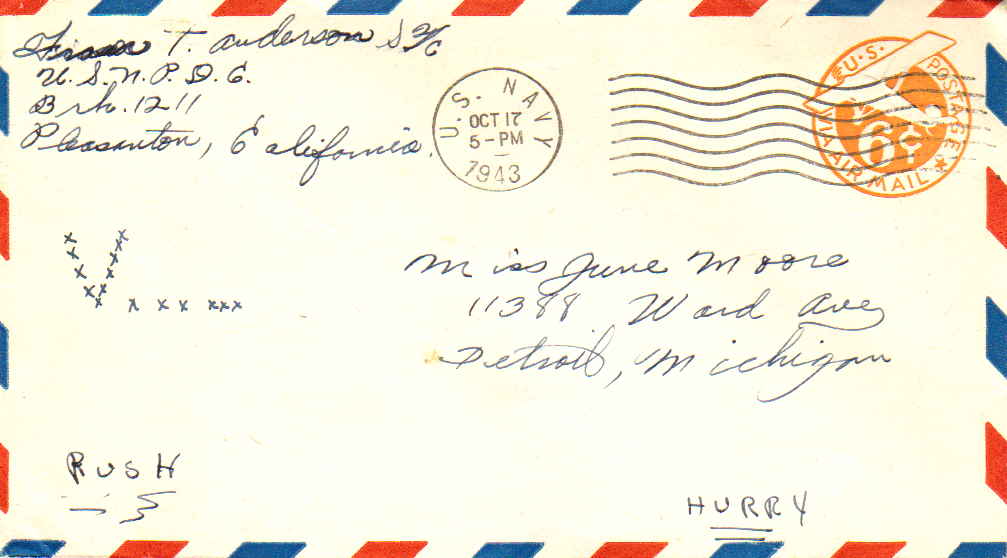 T. Anderson S 2/C
U.S.N.P.D.C.
Brk. 1211
Pleasanton, California.
U.S. NAVY
OCT 17
5-PM
1943
U.S. POSTAGE
6¢
VIA AIR MAIL
V
Miss June Moore
11388 Ward Ave
Detroit, Michigan
RUSH
HURRY